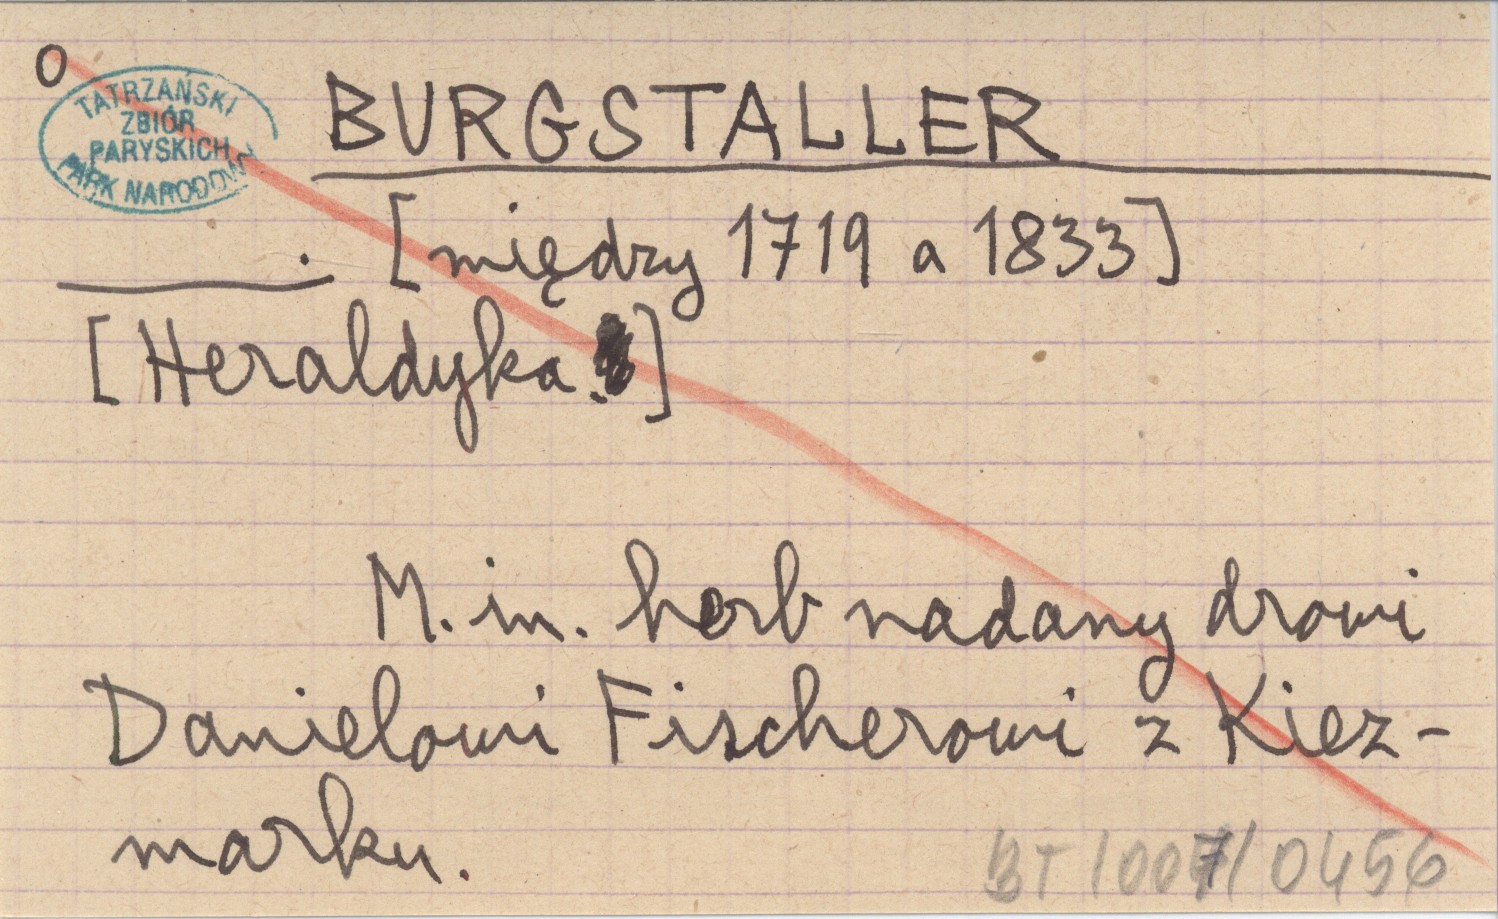 O
TATRZAŃSKI
ZBIÓR
PARYSKICH
PARK NARODOWY
BURGSTALLER
. [między 1719 a 1833]
[Heraldyka.]
M. in. herb nadany drowi
Danielowi Fischerowi z Kiez-
marku.
BT 1007/0456